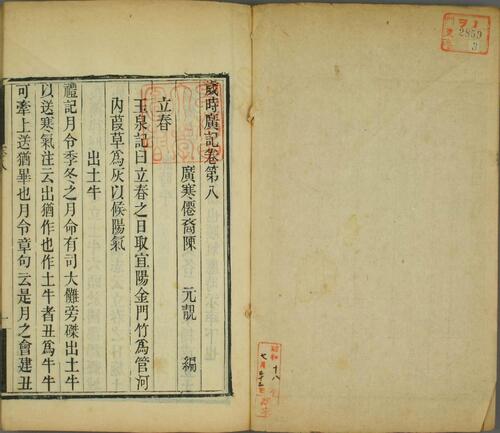 歲時廣記卷第八
廣寒僊裔陳 元靚 編
立春
玉泉記曰立春之日取宜陽金門竹爲管河
內葭草爲灰以候陽氣
出土牛
禮記月令季冬之月命有司大儺旁磔出土牛
以送寒氣注云出猶作也作土牛者丑爲牛牛
可牽止送猶畢也月令章句云是月之會建丑
2859
3
昭和十八年